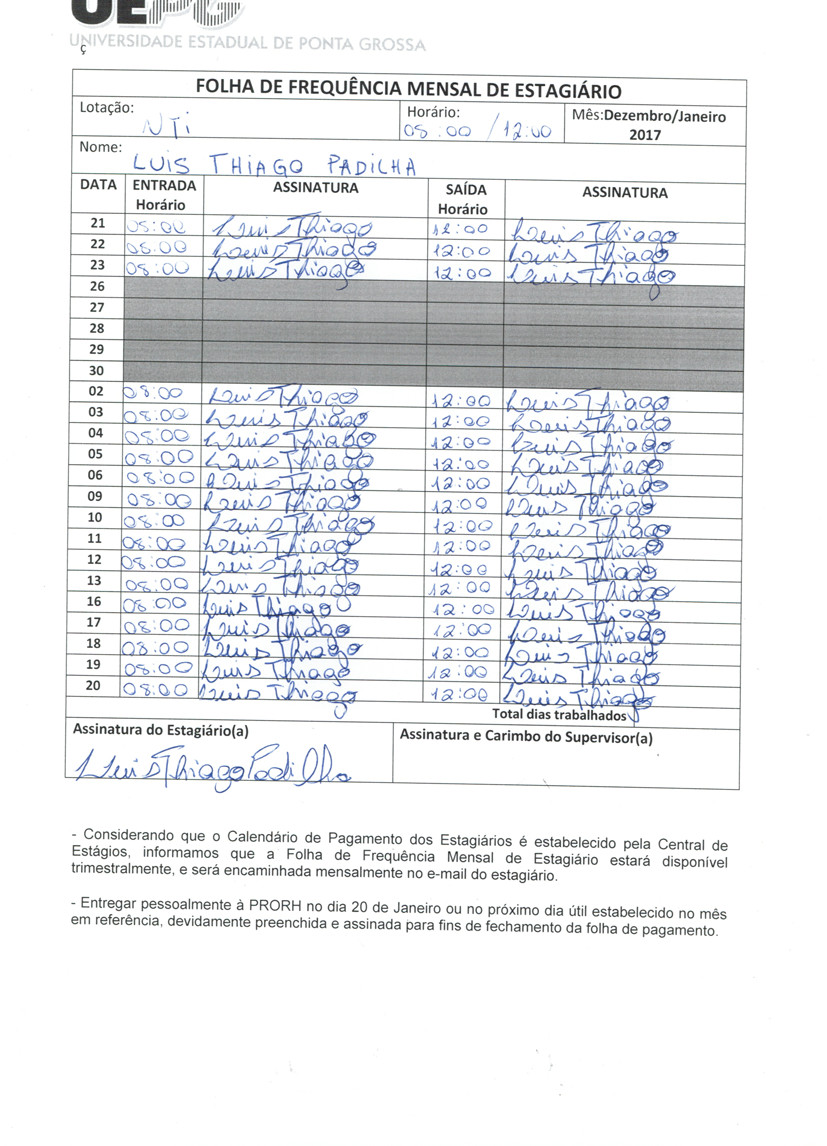 UEPG
UNIVERSIDADE ESTADUAL DE PONTA GROSSA
ç
FOLHA DE FREQUÊNCIA MENSAL DE ESTAGIÁRIO
Lotação: NTi Horário: 08:00 / 12:00 Mês:Dezembro/Janeiro 2017
Nome: LUIS THIAGO PADILHA
DATA ENTRADA Horário ASSINATURA SAÍDA Horário ASSINATURA
21 08:00 Luis Thiago 12:00 Luis Thiago
22 08:00 Luis Thiago 12:00 Luis Thiago
23 08:00 Luis Thiago 12:00 Luis Thiago
26
27
28
29
30
02 08:00 Luis Thiago 12:00 Luis Thiago
03 08:00 Luis Thiago 12:00 Luis Thiago
04 08:00 Luis Thiago 12:00 Luis Thiago
05 08:00 Luis Thiago 12:00 Luis Thiago
06 08:00 Luis Thiago 12:00 Luis Thiago
09 08:00 Luis Thiago 12:00 Luis Thiago
10 08:00 Luis Thiago 12:00 Luis Thiago
11 08:00 Luis Thiago 12:00 Luis Thiago
12 08:00 Luis Thiago 12:00 Luis Thiago
13 08:00 Luis Thiago 12:00 Luis Thiago
16 08:00 Luis Thiago 12:00 Luis Thiago
17 08:00 Luis Thiago 12:00 Luis Thiago
18 08:00 Luis Thiago 12:00 Luis Thiago
19 08:00 Luis Thiago 12:00 Luis Thiago
20 08:00 Luis Thiago 12:00 Luis Thiago
Total dias trabalhados
Assinatura do Estagiário(a) Assinatura e Carimbo do Supervisor(a)
Luis Thiago Padilha
- Considerando que o Calendário de Pagamento dos Estagiários é estabelecido pela Central de
Estágios, informamos que a Folha de Frequência Mensal de Estagiário estará disponível
trimestralmente, e será encaminhada mensalmente no e-mail do estagiário.
- Entregar pessoalmente à PRORH no dia 20 de Janeiro ou no próximo dia útil estabelecido no mês
em referência, devidamente preenchida e assinada para fins de fechamento da folha de pagamento.